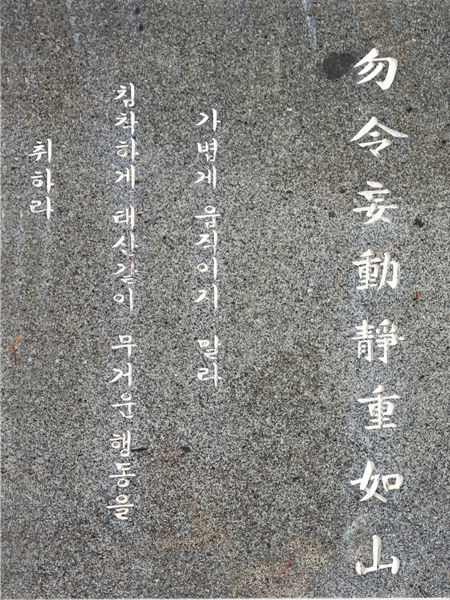 勿令妄動靜重如山
가볍게 움직이지 말라
침착하게 태산같이 무거운 행동을
취하라